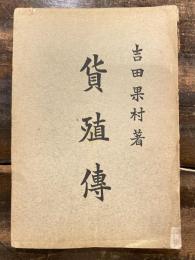 吉田果村著
貨殖傳